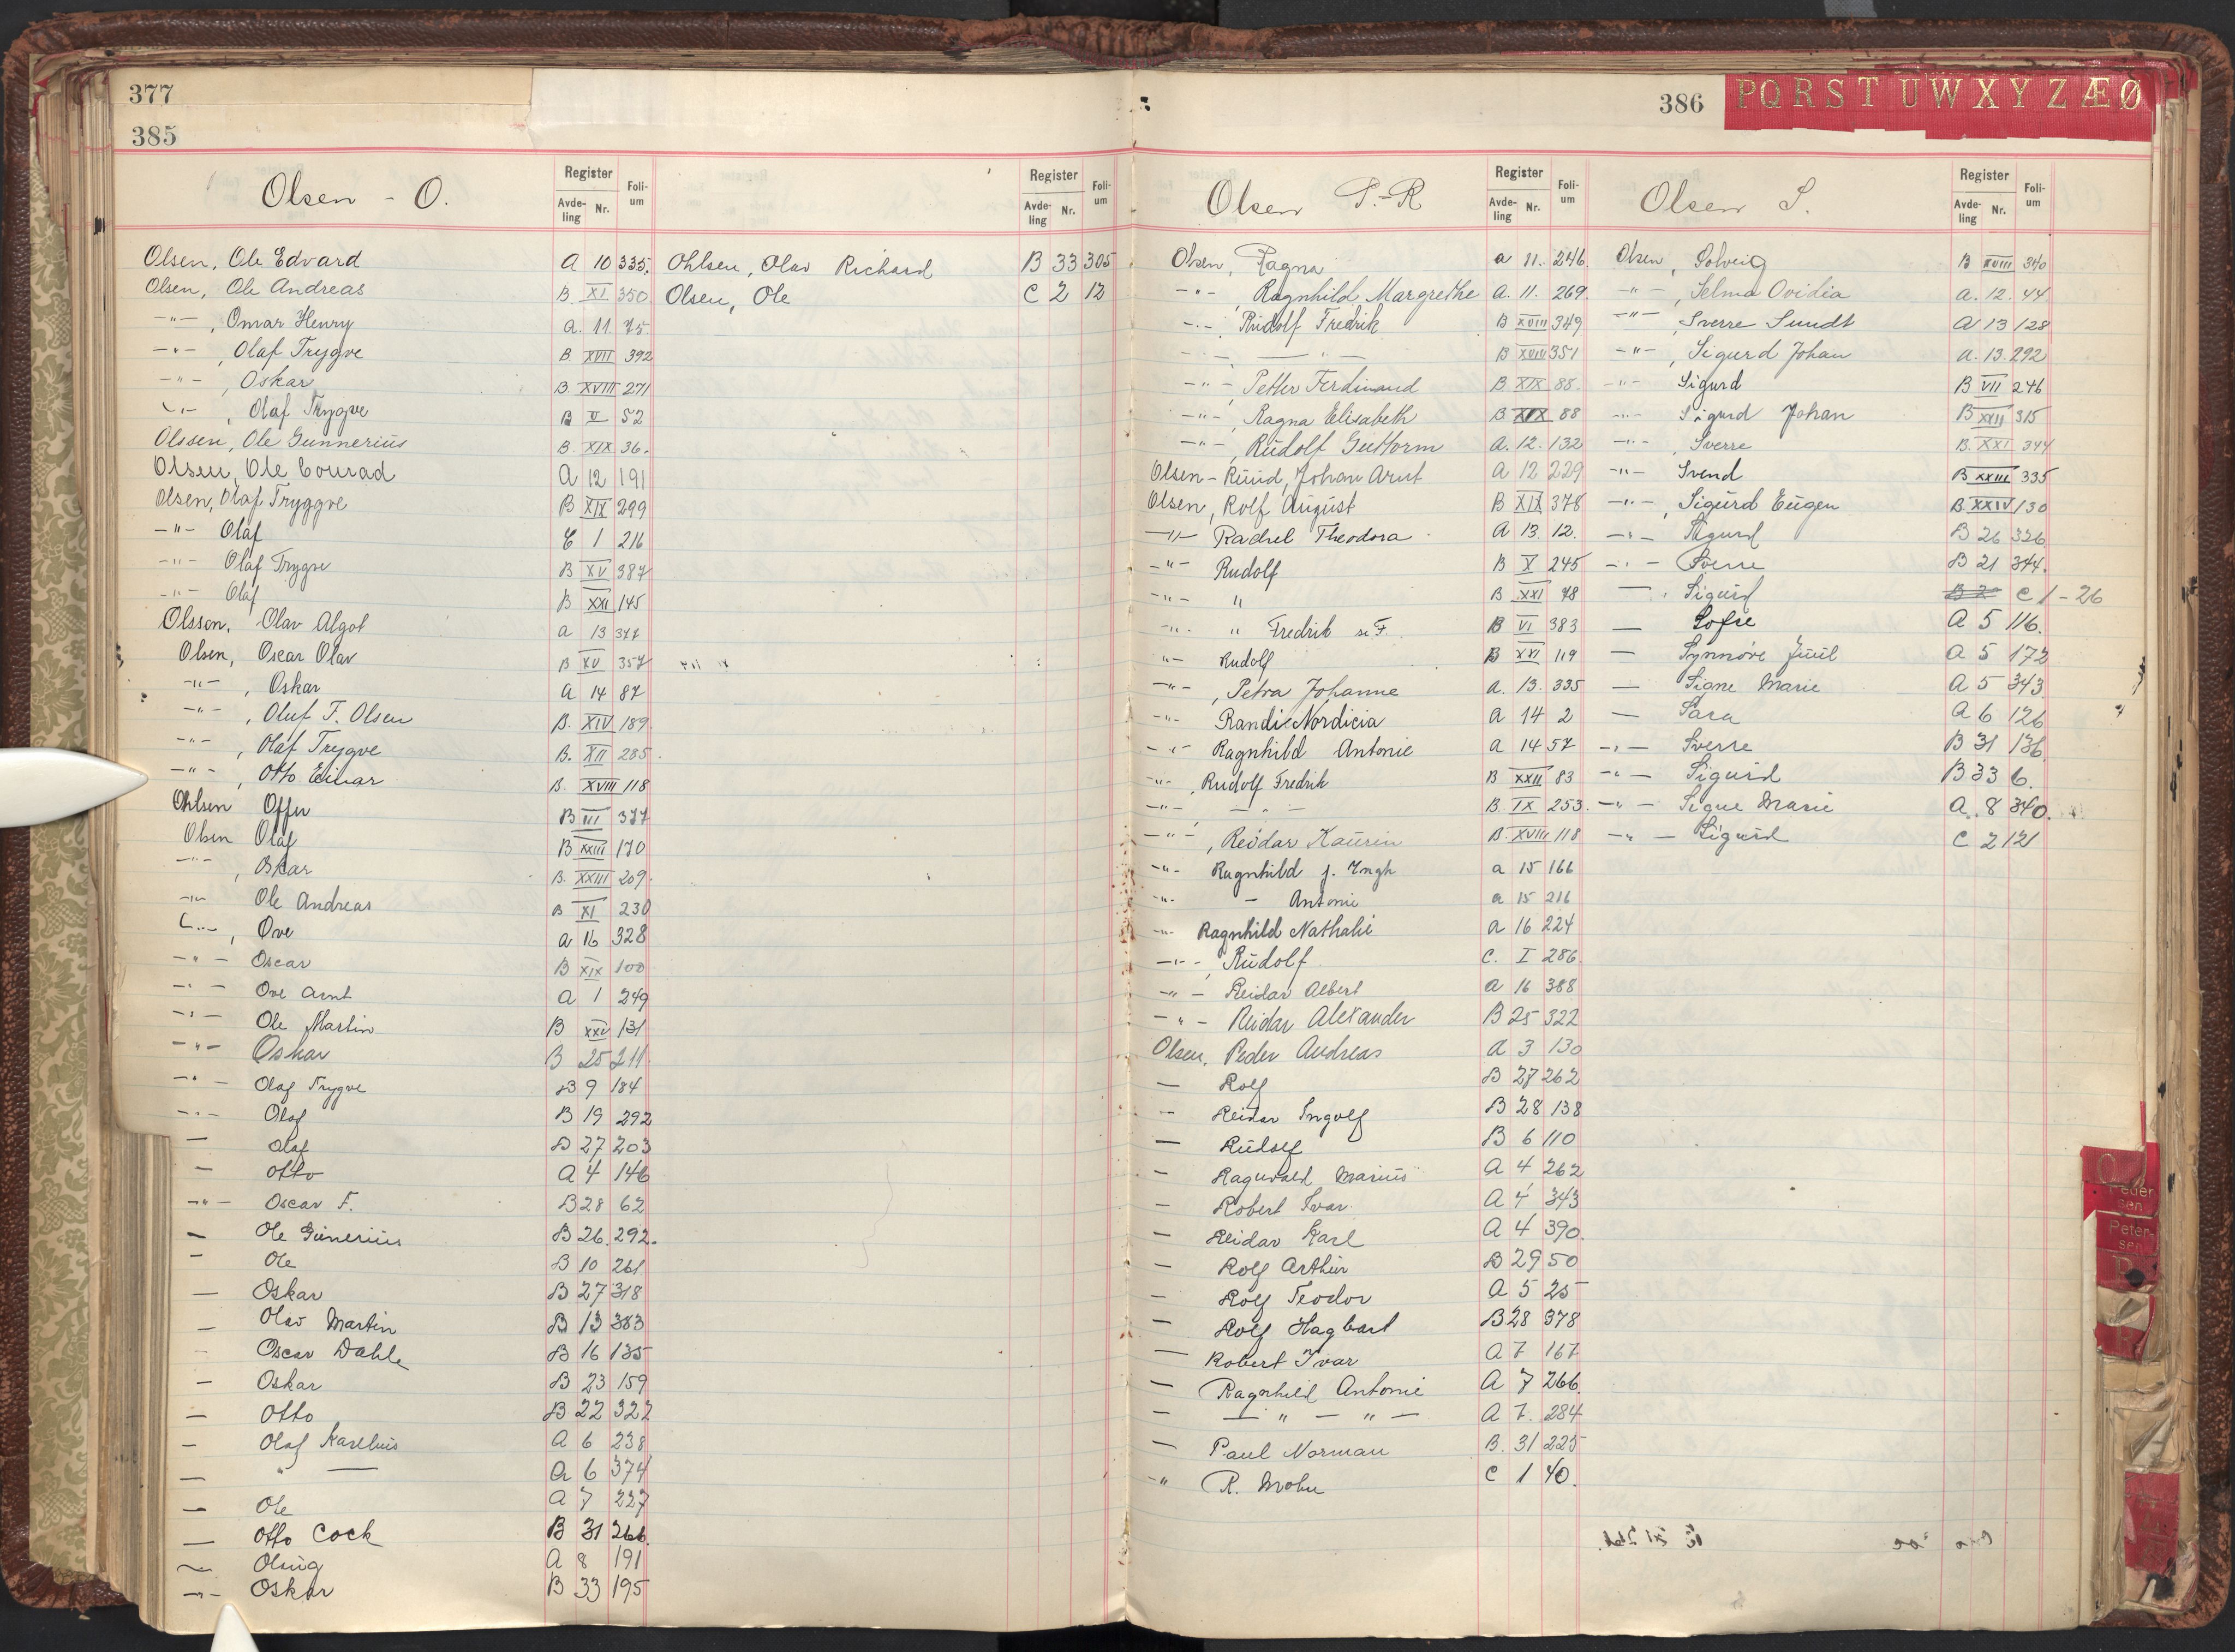 377
385
Olsen - O.
Register Foli-um
Avde-ling Nr.
Olsen, Ole Edvard A 10 335.
Olsen, Ole Andreas B. XI 350
-"- , Omar Henry a. 11. 75.
-"- , Olaf Trygve B. XVII 392
-"- , Oskar B. XVIII 271
-"- , Olaf Trygve B V 52
Olssen, Ole Gunnerius B. XIX 36.
Olsen, Ole Conrad A 12 191
Olsen, Olaf Tryggve B XIX 299
-"- Olaf C 1 216
-"- Olaf Trygve B XV 387
-"- Olaf B XXI 145
Olsson, Olav Algot a 13 377
Olsen, Oscar Olav B XV 357
-"- , Oskar a 14 87
-"- , Oluf T. Olsen B. XIV 189
-"- , Olaf Trygve B. XII 285.
-"- , Otto Einar B. XVIII 118
Ohlsen Offer B III 377
Olsen Olaf B XXIII 170
-"- , Oskar B. XXIII 209.
-"- Ole Andreas B XI 230
-"- , Ove a 16 328
-"- Oscar B XIX 100
-"- Ove Arnt A 1 249
-"- Ole Martin B XXV 131
-"- Oskar B 25 211
-"- Olaf Trygve B 9 184
-"- Olaf B 19 292
— Olaf B 27 203
— Otto A 4 146
-"- Oscar F. B 28 62
— Ole Günerius B 26. 292.
— Ole B 10 261
— Oskar B 27 318
— Olav Martin B 13 383
— Oscar Dahle B 16 135
— Oskar B 23 159
— Otto B 22 322
— Olaf Karelius A 6 238
— " — A 6 374
— Ole A 7 227
— Otto Cock B 31 266.
— A 8 191
-"- Oskar B 33 195
Register Foli-um
Avde-ling Nr.
Ohlsen, Olav Richard B 33 305
Olsen, Ole C 2 12
386
P Q R S T U W X Y Z Æ Ø
Olsen P.-R
Register Foli-um
Avde-ling Nr.
Olsen, Ragna a 11. 246
-"- , Ragnhild Margrethe A. 11. 269.
-"- , Rudolf Fredrik B XVIII 349
-"- — " — B XVIII 351
-"- , Petter Ferdinand B XIX 88.
-"- , Ragna Elisabeth B XIX 88
-"- , Rudolf Guttorm A. 12. 132
Olsen-Ruud, Johan Arnt A 12 229
Olsen, Rolf August B XIX 378
-"- Rachel Theodora A 13. 12.
-"- Rudolf B X 245
-"- " B XXI 78
-"- " Fredrik B VI 383
-"- Rudolf B XXI 119
-"- , Petra Johanne a. 13. 335
-"- Randi Nordicia a 14 2
-"- Ragnhild Antonie a 14 57
-"- , Rudolf Fredrik B XXII 83
-"- — " — B. IX 253.
-"- , Reidar Kaurin B. XVIII 118
-"- Ragnhild f. Yngh a 15 166
-"- — Antonie a 15 216
-"- Ragnhild Nathalie a 16 224
-"- , Rudolf C. I 286.
-"- Reidar Albert a 16 388
-"- Reidar Alexander B 25 322
Olsen, Peder Andreas A 3 130
— Rolf B 27 262
— Reidar Ingolf B 28 138
— Rudolf B 6 110
— Ragnvald Marius A 4 262
— Robert Ivar A 4 343
— Reidar Karl A 4 390.
— Rolf Arthur B 29 50
— Rolf Teodor A 5 25
— Rolf Hagbart B 28 378
— Robert Ivar A 7 167
— Ragnhild Antonie A 7 266.
— — " — " — A 7. 284
— Paul Norman B. 31 225
-"- R. Mohn C 1 40.
Olsen S.
Register Foli-um
Avde-ling Nr.
Olsen, Solveig B XVIII 340
-"- , Selma Ovidia A. 12. 44
-"- , Sverre Sundt A 13 128
-"- , Sigurd Johan A. 13. 292
-"- Sigurd B VII 246
-"- Sigurd Johan B XXII 315
-"- , Sverre B. XXI 344
-"- Svend B XXIII 335
-"- , Sigurd Eugen B. XXIV 130
-"- Sigurd B 26 326
-"- Sverre B 21 344.
— Sigurd B 2 C 1 - 26
— Sofie A 5 116.
— Synnøve Juul A 5 172
— Signe Marie A 5 343
— Sara A 6 126
-"- Sverre B 31 136
-"- Sigurd B 33 6.
-"- Signe Marie A. 8 340.
-"- Sigurd C 2 121
O
Peder-sen
Peter-sen
P
R